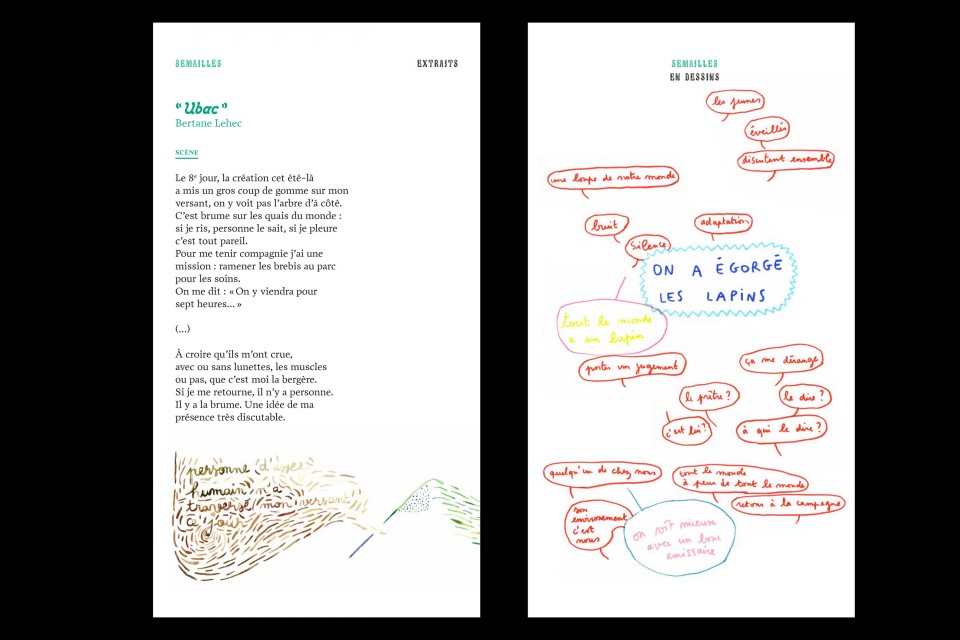 SEMAILLES
EXTRAITS
“ Ubac ”
Bertane Lehec
SCÈNE
Le 8e jour, la création cet été-là
a mis un gros coup de gomme sur mon
versant, on y voit pas l’arbre d’à côté.
C’est brume sur les quais du monde :
si je ris, personne le sait, si je pleure
c’est tout pareil.
Pour me tenir compagnie j’ai une
mission : ramener les brebis au parc
pour les soins.
On me dit : « On y viendra pour
sept heures... »
(...)
À croire qu’ils m’ont crue,
avec ou sans lunettes, les muscles
ou pas, que c’est moi la bergère.
Si je me retourne, il n’y a personne.
Il y a la brume. Une idée de ma
présence très discutable.
personne d'assez
humain n'a
traversé mon versant
ce jour
SEMAILLES
EN DESSINS
les jeunes
éveillés
discutent ensemble
une loupe de notre monde
bruit
adaptation
silence
ON A ÉGORGÉ
LES LAPINS
tout le monde
a un lapin
porter un jugement
ça me dérange
le prêtre ?
le dire ?
c'est lui ?
à qui le dire ?
quelqu'un de chez nous
tout le monde
a peur de tout le monde
retour à la campagne
son
environement
c'est
nous
on voit mieux
avec un bouc
emissaire